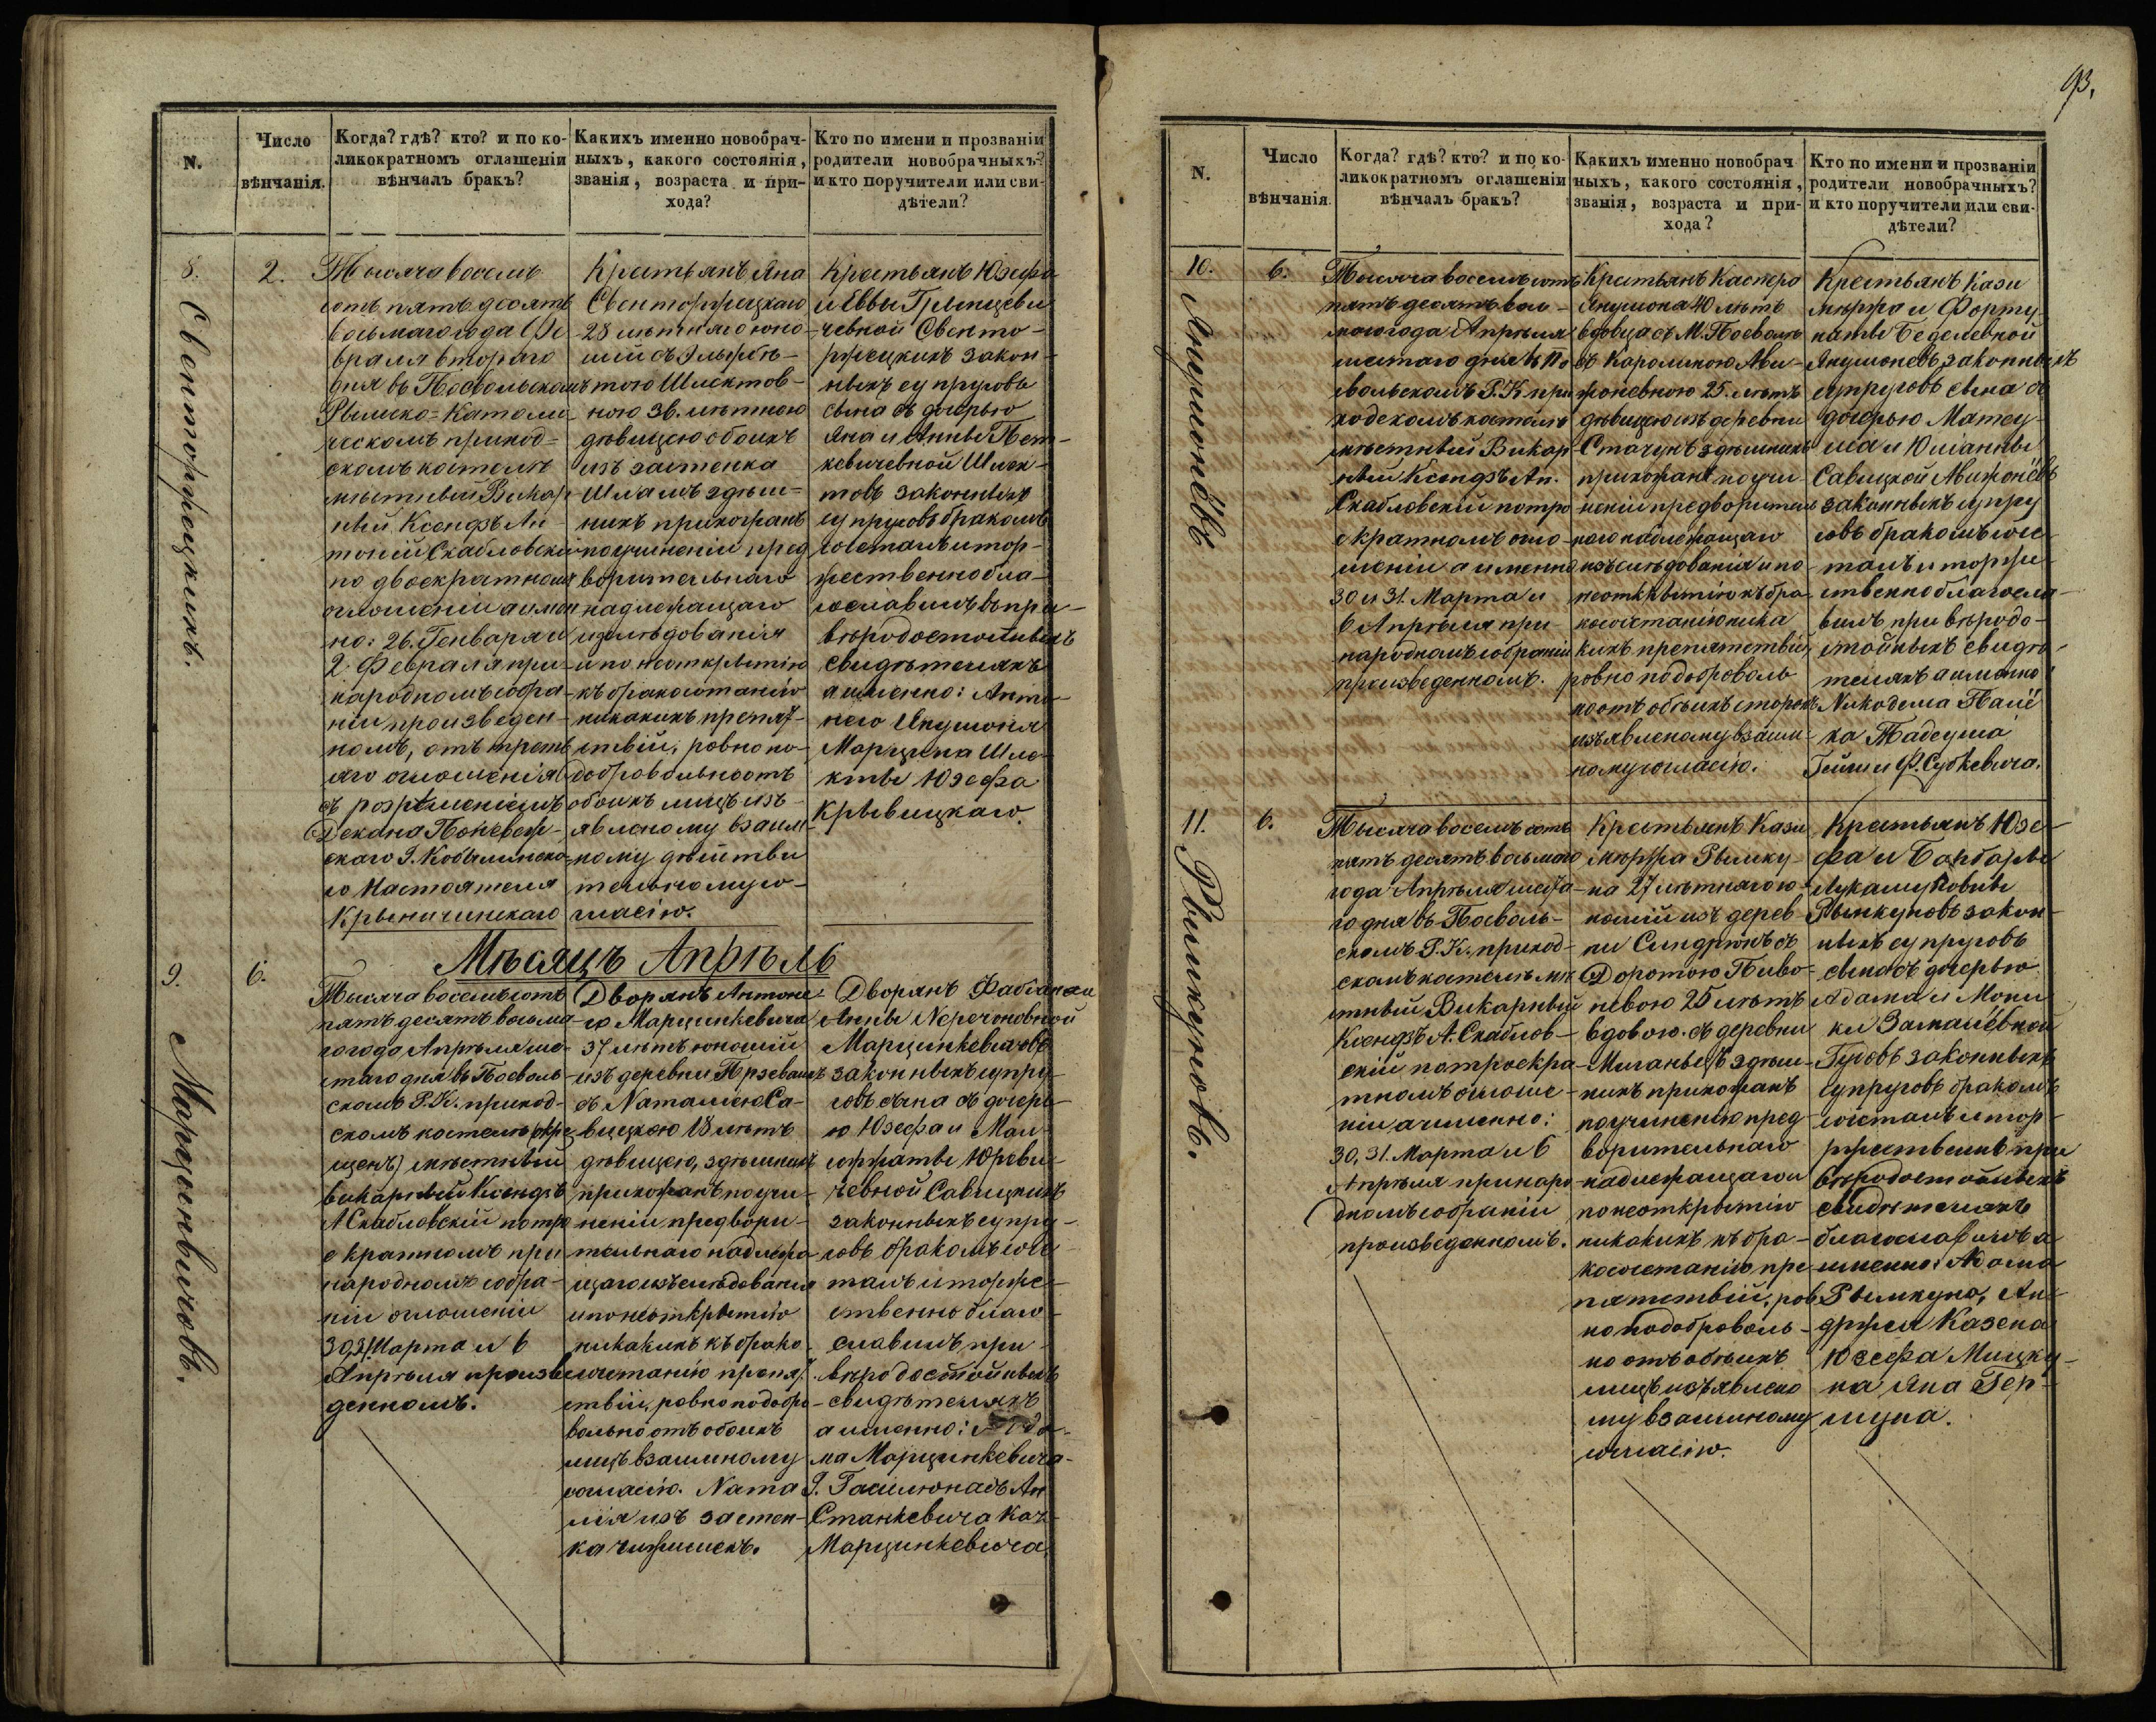 93.
N.
Число
вѣнчанія.
Когда? гдѣ? кто? и по ко-
ликократномъ оглашеніи
вѣнчалъ бракъ?
Какихъ именно новобрач-
ныхъ, какого состоянія,
званія, возраста и при-
хода?
Кто по имени и прозваніи
родители новобрачныхъ?
и кто поручители или сви-
дѣтели?
8.
2.
Тысяча восемь
сотъ пятъ десятъ
восьмаго года Фе
враля втораго
дня въ Посвольскомъ
Рымско=Католи
ческомъ приход=
скомъ костелѣ
мѣстный Викар
ный Ксендзъ Ан
тоній Скабловскій
по двоекратномъ
оглошеніи а имен
но: 26. Генваря и
2. Февраля при
народномъ собра
ніи произведен-
номъ, отъ треть
яго оглошенія
съ розрѣшеніемъ
Декана Поневеж-
скаго
го Настоятеля
Крыничинскаго
Крестьянъ Яна
Свенторжецкаго
28 лѣтняго юно
шій съ
тою Шлектов-
ною 36. лѣтною
дѣвицею обоихъ
изъ застенка
здѣш=
нихъ прихожанъ
по учиненіи пред
ворительнаго
надлежащаго
изслѣдованія
и по неоткрытію
къ бракосотанію
никакихъ препят-
ствій, ровно по-
добровольно отъ
обоихъ лицъ изъ-
явленому взаим-
ному дѣйстви
тельному со-
гласію.
Крестьянъ Юзефа
и Еввы
чевной Свенто-
ржецкихъ закон-
ныхъ супруговъ
сына съ дочерью
Яна и Анны Пет-
кевичевной Шлек-
товъ законныхъ
супруговъ бракомъ
сочеталъ и тор-
жественно бла-
гославилъ въ при-
вѣродостойныхъ
свидѣтеляхъ
а именно: Анто-
него Якушоня
Марцина Шле-
кты Юзефа
Крывицкаго.
Свенторжецкихъ.
Мѣсяцъ Апрѣль
9.
6.
Тысяча восемь сотъ
пятъ десятъ восьма
го года Апрѣля ше-
стаго дня въ Посволь
скомъ Р. К. приход-
скомъ костелѣ
мѣстный
викарный Ксендзъ
А Скабловскій по тро
екратномъ при
народномъ собра-
ніи оглошеніи
30, 31. Марта и 6
Апрѣля произве
денномъ.
Дворянъ Антоне
го Марцинкевича
37 лѣтъ юношій
изъ деревни
съ Наталіею Са-
вицкою 18 лѣтъ
дѣвицею, здѣшнихъ
прихожанъ по учи-
неніи предвори-
тельнаго надлежа
щаго изъслѣдованія
и по неоткрытію
никакихъ къ брако
сочетанію препят.
ствій, ровно по добро
вольно отъ обоихъ
лицъ взаимному
согласію. Ната
лія изъ застен-
ка
Дворянъ Фабіана и
Анны
Марцинкевичовъ
законныхъ супру-
говъ сына съ дочерь
ю Юзефа и Мал-
горжаты Юреви-
чевной Савицкихъ
законныхъ супру-
говъ бракомъ соче
талъ и торже-
ственно благо-
славилъ при
вѣродостойныхъ
свидѣтеляхъ
а именно: Ада-
ма Марцинкевича-
Станкевича Каз
Марцинкевича
Марцинкевичовъ.
N.
Число
вѣнчанія.
Когда? гдѣ? кто? и по ко-
ликократномъ оглашеніи
вѣнчалъ бракъ?
Какихъ именно новобрач
ныхъ, какого состоянія,
званія, возраста и при-
хода?
Кто по имени и прозваніи
родители новобрачныхъ?
и кто поручители или сви-
дѣтели?
10.
6.
Тысяча восемь сотъ
пятъ десятъ вось-
маго года Апрѣля
шестаго дня въ По
свольскомъ Р. К при
ходскомъ костелѣ
мѣстный Викар
ный Ксендзъ Ан.
Скабловскій по тро
екратномъ огло-
шеніи а именно
30 и 31. Марта и
6 Апрѣля при
народномъ собраніи
произведенномъ.
Крестьянъ Каспера
Якушона 40 лѣтъ
вдовца съ М. Посволь
съ Каролиною Ми-
жоневною 25. лѣтъ
дѣвицею изъ деревни
Стачунъ здѣшнихъ
прихожанъ по учи-
неніи предворитель
наго надлежащаго
изъслѣдованія и по
неоткрытію къ бра
косочетанію ника
кихъ препятствій,
ровно по доброволь
но отъ обѣихъ сторонъ
изъявленому взаим-
ному согласію.
Крестьянъ Кази
мѣржа и Форту-
наты Беделевной
Якушоневъ законныхъ
супруговъ сына съ
дочерью Матеу-
ша и Юліанны
Савицкой Мижонёвъ
законныхъ супру
говъ бракомъ соче-
талъ и торже-
ственно благосла-
вилъ при вѣродо-
стойныхъ свидѣ-
теляхъ а именно
Никодема
ка Тадеуша
и Ф. Суткевича.
Якушонёвъ
11.
6.
Тысяча восемь сотъ
пятъ десятъ восьмаго
года Апрѣля шеста-
го дня въ Посволь-
скомъ Р. К. приход-
скомъ костелѣ мѣ
стный Викарный
Ксендзъ А. Скаблов-
скій по троекра-
тномъ оглоше-
ніи а именно:
30, 31. Марта и 6
Апрѣля при наро
дномъ собраніи
произведенномъ.
Крестьянъ Кази
мѣржа Рымку-
на 27 лѣтняго ю-
ношій изъ дерев
ни съ
Доротою Пиво-
невою 25 лѣтъ
вдовою. съ деревни
здѣш-
нихъ прихожанъ
по учиненію пред
ворительнаго
надлежащаго и
по неоткрытію
никакихъ къ бра-
косочетанію пре
пятствій, ров
но по доброволь-
но отъ обѣихъ
лицъ изъявлено
му взаимному
согласію.
Крестьянъ Юзе-
фа и Барбары
Рымкуновъ закон-
ныхъ супруговъ
сына съ дочерью
Адама и Мони
ки
законныхъ
супруговъ бракомъ
сочеталъ и тор-
жественъ при
вѣродостойныхъ
свидѣтеляхъ
благославилъ а
именно: Адама
Рымкуна, Ан-
држея Казена
Юзефа Мицку-
на Яна Гер-
шуна.
Рымкуновъ.